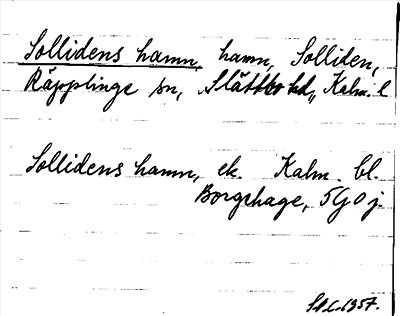 Sollidens hamn, hamn, Solliden,
Räpplinge sn, Slättbo hd, Kalm. l
Sollidens hamn, ek. Kalm. bl.
Borgehage, 5Gj0j.
1957.